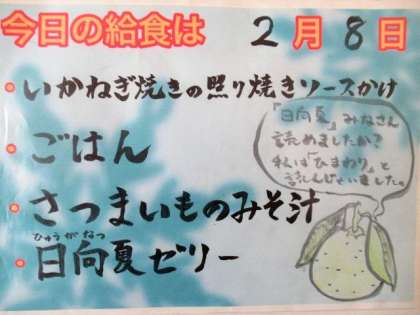 今日の給食は 2月8日
・いかねぎ焼きの照り焼きソースかけ
・ごはん
・さつまいものみそ汁
ひゅうがなつ
・日向夏ゼリー
「日向夏」みなさん
読めましたか?
私は「ひまわり」と
読んじゃいました。